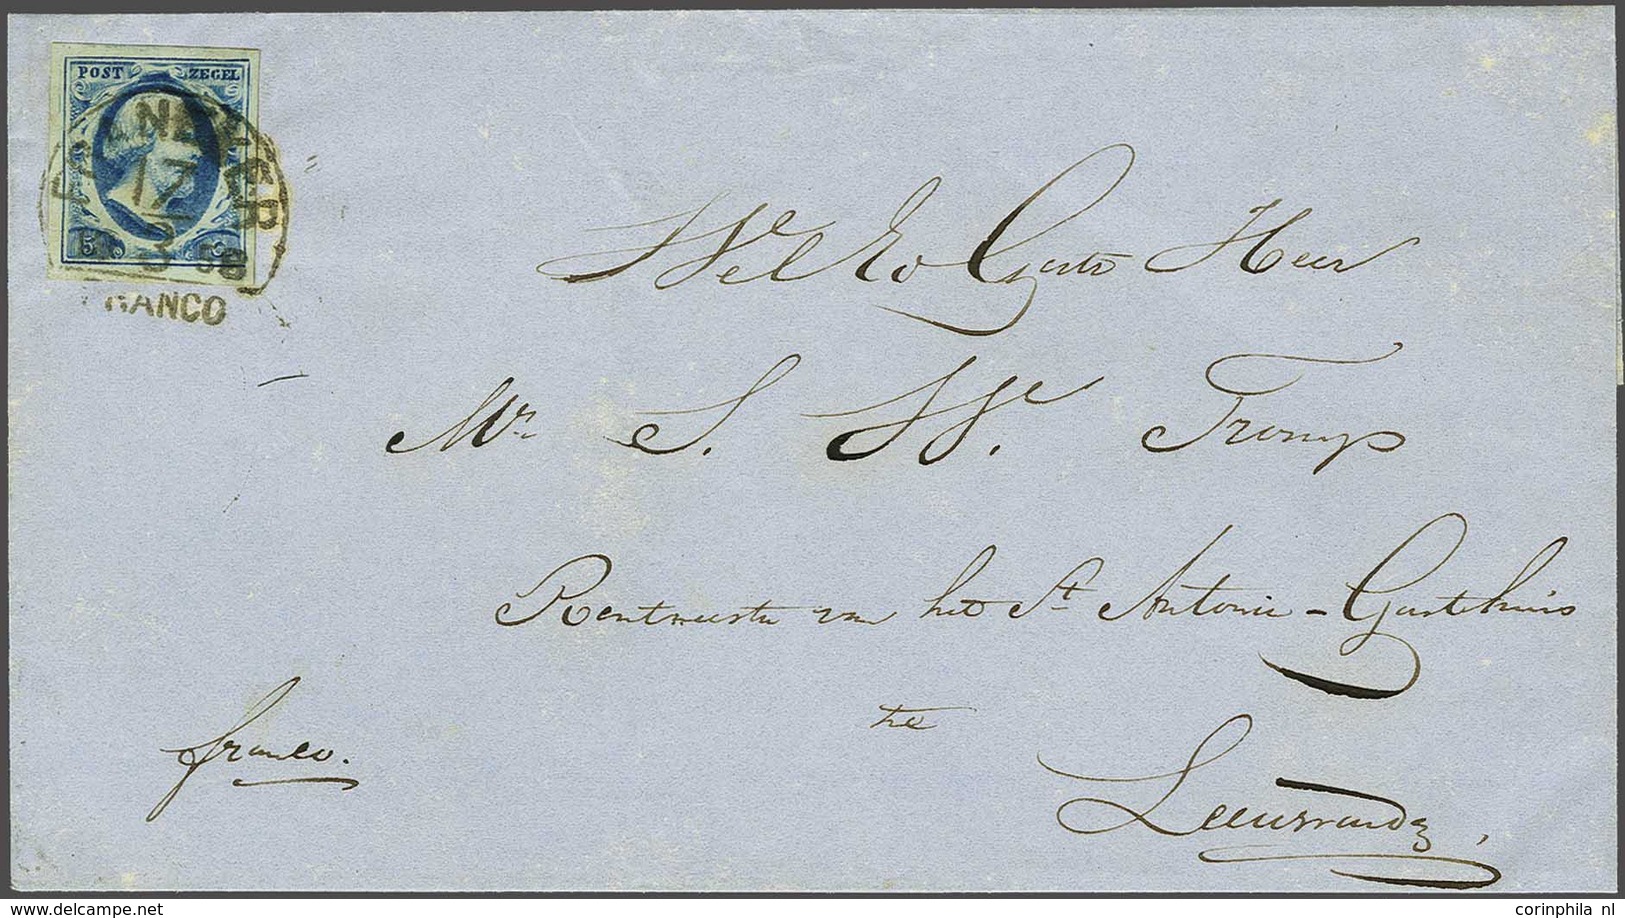 POST ZEGEL
FRANEKER
17
3
58
5 C
RANCO
Wel Ed Gestr Heer
Mr. S. W. Tromp
Rentmeester van het St Antonie-Gasthuis
te
Leeuwarden,
franco.
corinphila nl